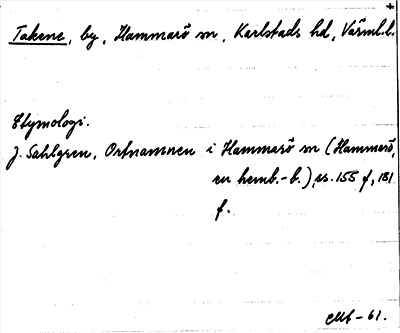 +
Takene, by, Hammarö sn, Karlstads hd, Värml.l.
Etymologi.
J. Sahlgren, Ortnamnen i Hammarö sn (Hammarö,
en hemb.-b.), s. 155 f, 181
f.
-61.